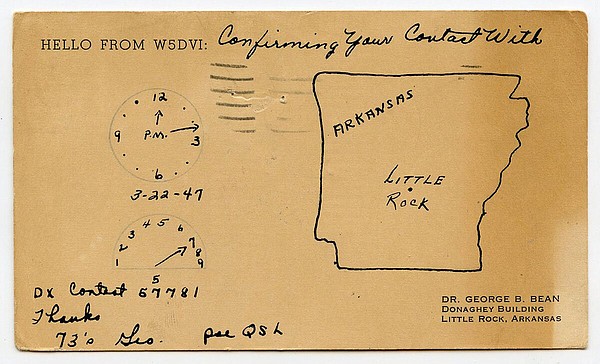 HELLO FROM W5DVI: Confirming Your Contact With
12
9 P.M. 3
6
3-22-47
ARKANSAS
LITTLE ROCK
1 2 3 4 5 6 7 8 9
5
DX Contest 57781
Thanks
73's Geo. pse QSL
DR. GEORGE B. BEAN
DONAGHEY BUILDING
LITTLE ROCK, ARKANSAS